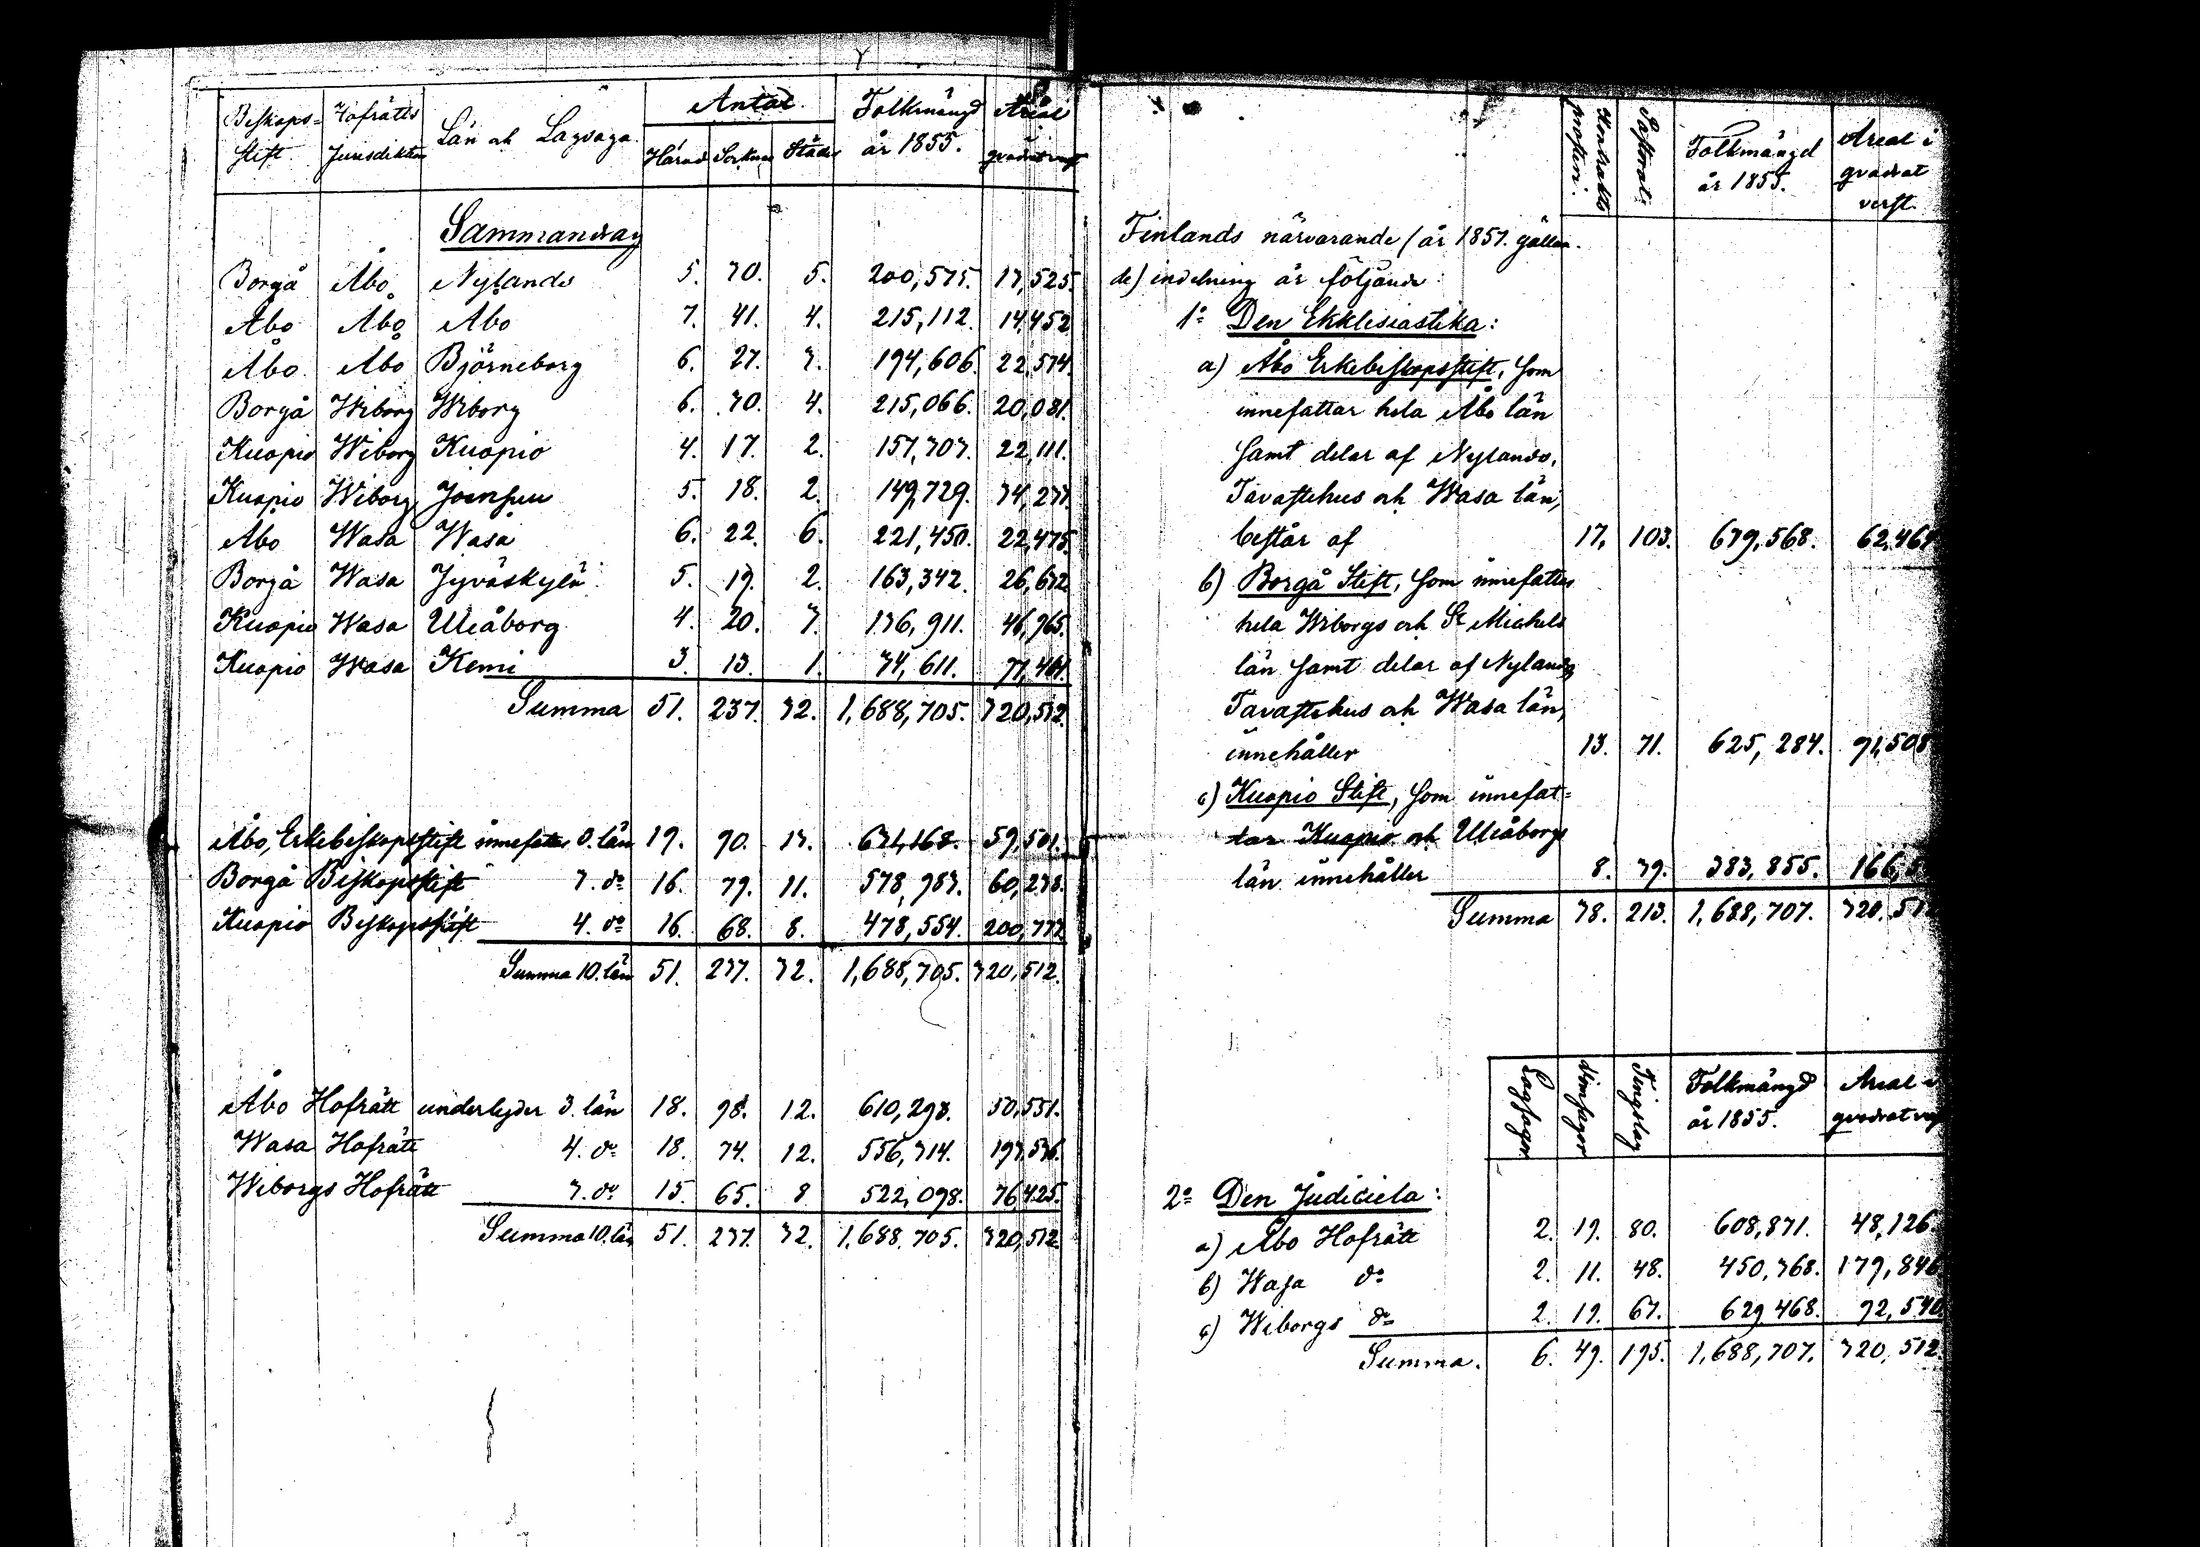 Biskops= stift Hofrätts Jurisdiktion Län och Lagsaga Antal Härad Socknar Städer Folkmängd år 1855. Areal qvadratverst
Sammandrag
Borgå Åbo Nylands 5. 30. 5. 200,575. 13,525.
Åbo Åbo Åbo 7. 41. 4. 215,112. 14,452
Åbo Åbo Björneborg 6. 27. 3. 194,606. 22,574.
Borgå Wiborg Wiborg 6. 30. 4. 215,066. 20,081.
Kuopio Wiborg Kuopio 4. 17. 2. 157,303. 22,111.
Kuopio Wiborg Joensuu 5. 18. 2. 149,729. 34,233.
Åbo Wasa Wasa 6. 22. 6. 221,450. 22,475.
Borgå Wasa Jyväskylä 5. 19. 2. 163,342. 26,632
Kuopio Wasa Uleåborg 4. 20. 3. 136,911. 46,965.
Kuopio Wasa Kemi 3. 13. 1. 34,611. 97,464.
Summa 51. 237. 32. 1,688,705. 320,512.
Åbo, Erkebiskopsstift innefattar 3. län 19. 90. 13. 631,168. 59,501.
Borgå Biskopsstift 3. do 16. 79. 11. 578,983. 60,238.
Kuopio Biskopsstift 4. do 16. 68. 8. 478,554. 200,773.
Summa 10. län 51. 237. 32. 1,688,705. 320,512.
Åbo Hofrätt underlyder 3. län 18. 98. 12. 610,293. 50,551.
Wasa Hofrätt 4. do 18. 74. 12. 556,314. 193,536.
Wiborgs Hofrätt 3. do 15. 65. 8 522,098. 76,425.
Summa 10. län 51. 237. 32. 1,688,705. 320,512
Kontrakts prosteri. Pastorat. Folkmängd år 1855. Areal i qvadrat verst.
Finlands närvarande (år 1857. gällan-
de) indelning är följande
1o Den Ekklesiastika:
a) Åbo Erkebiskopsstift, som
innefattar hela Åbo län
samt delar af Nylands,
Tavastehus och Wasa län,
består af 17. 103. 679,568. 62,46
b) Borgå Stift, som innefattar
hela Wiborgs och St Michels
län samt delar af Nylands,
Tavastehus och Wasa län,
innehåller 13. 71. 625,284. 91,508
c) Kuopio Stift, som innefat=
tar Kuopio och Uleåborgs
län innehåller 8. 39. 383,855. 166,5
Summa 38. 213. 1,688,707. 320,512
Lagsagor Domsagor Tingslag Folkmängd år 1855. Areal i qvadratverst
2o Den Judiciela:
a) Åbo Hofrätt 2. 19. 80. 608,871. 48,126.
b) Wasa do 2. 11. 48. 450,368. 179,846
c) Wiborgs do 2. 19. 67. 629 468. 92,540
Summa. 6. 49. 195. 1,688,707. 320,512.